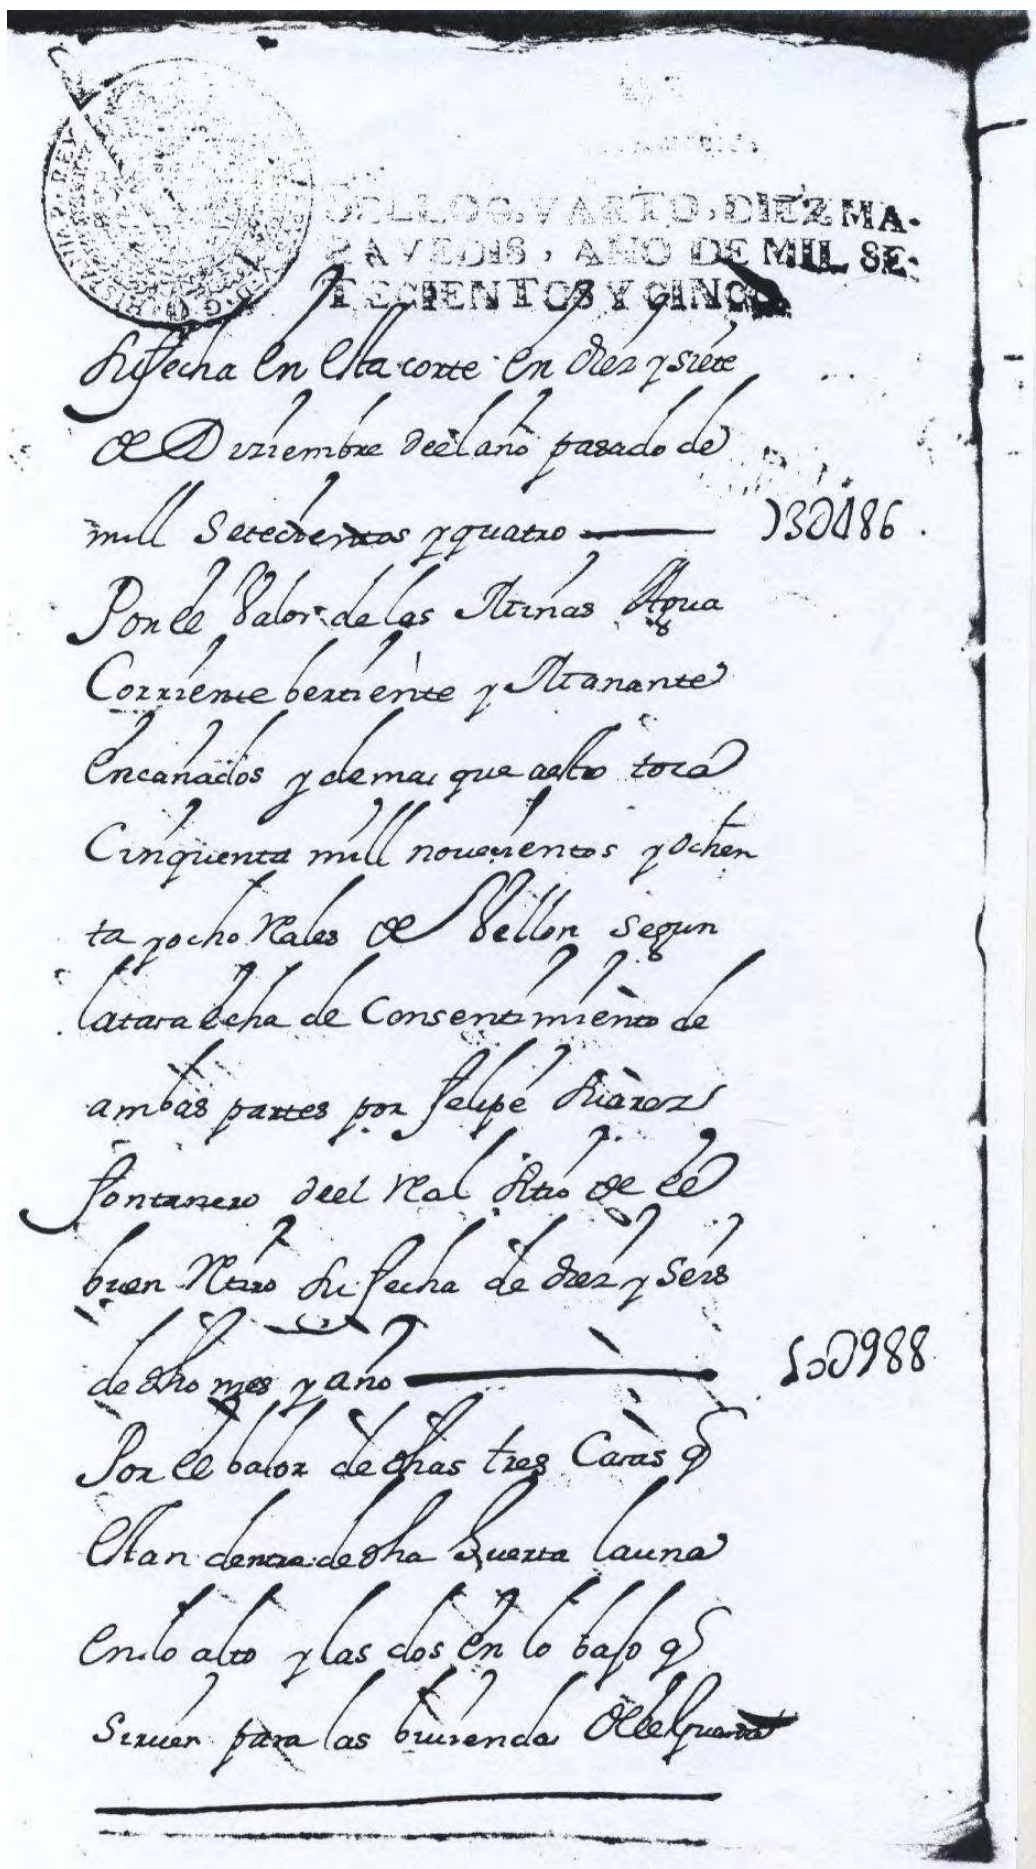 SELLO QVARTO, DIEZ MA-
RAVEDIS, AÑO DE MIL SE-
TECIENTOS Y CINCO
HISPANIAR REY D G
su fecha en esta corte en diez y siete
de Diziembre deel año pasado de
mill setecientos y quatro — 13U486
Por el Valor de las Minas Agua
Corriente bertiente y Manante
encañados y demas que aesto toca
Cinquenta mill nouecientos y ochen
ta y ocho Reales de Vellon segun
la tasa echa de Consentimiento de
ambas partes por felipe suarez
fontanero deel real sitio de el
buen Retiro su fecha de diez y seis
de dho mes y año — 50U988
Por el balor de dhas tres Casas q
estan dentro de dha huerta la una
en lo alto y las dos en lo bajo q
siruen para las biuienda de el guarda